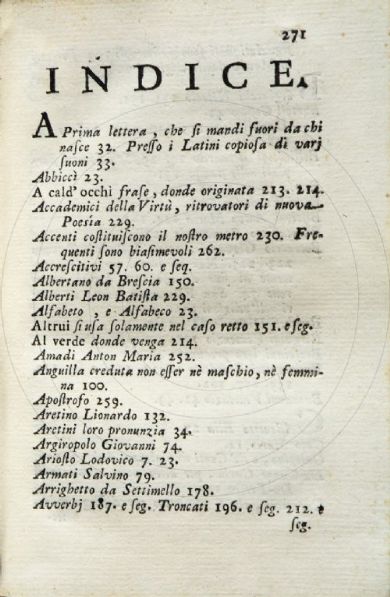 271
INDICE.
A Prima lettera, che si mandi fuori da chi
nasce 32. Presso i Latini copiosa di varj
suoni 33.
Abbiccì 23.
A cald' occhi frase, donde originata 213. 214.
Accademici della Virtù, ritrovatori di nuova
Poesia 229.
Accenti costituiscono il nostro metro 230. Fre-
quenti sono biasimevoli 262.
Accrescitivi 57. 60. e seq.
Albertano da Brescia 150.
Alberti Leon Batista 229.
Alfabeto, e Alfabeco 23.
Altrui si usa solamente nel caso retto 151. e seg.
Al verde donde venga 214.
Amadi Anton Maria 252.
Anguilla creduta non esser nè maschio, nè femmi-
na 100.
Apostrofo 259.
Aretino Lionardo 132.
Aretini loro pronunzia 34.
Argiropolo Giovanni 74.
Ariosto Lodovico 7. 23.
Armati Salvino 79.
Arrighetto da Settimello 178.
Avverbj 187. e seg. Troncati 196. e seg. 212. e
seg.